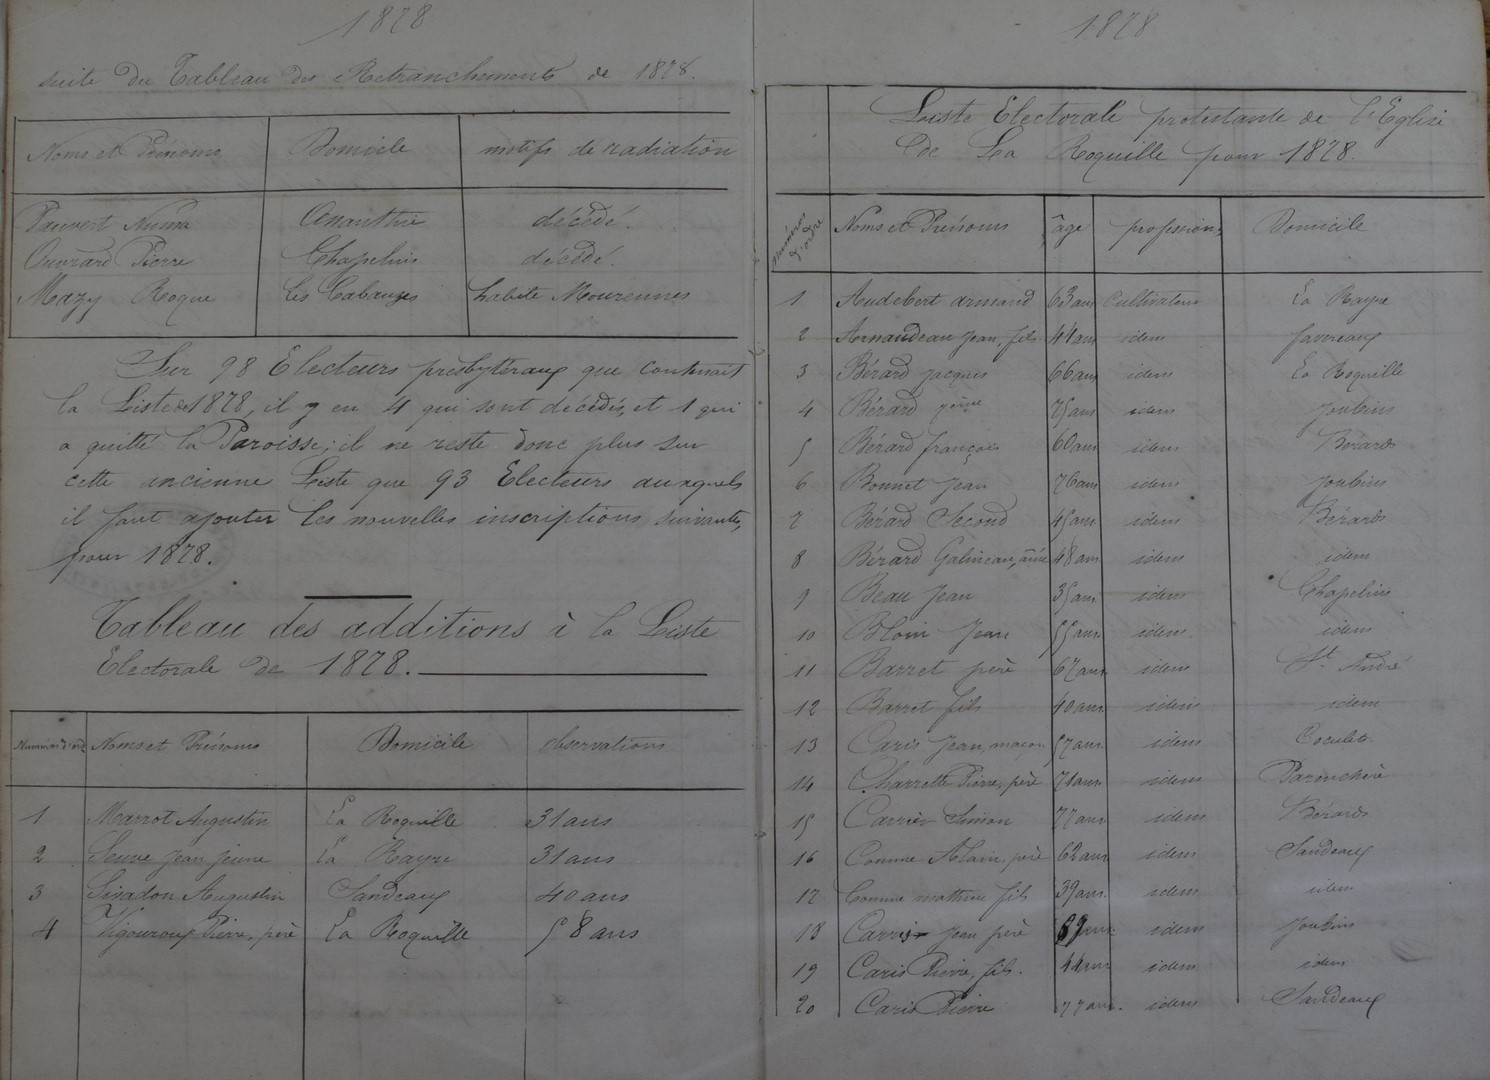 1878
suite du Tableau des Retranchements de 1878.
Noms et Prénoms Domicile motifs de radiation
Pauvert Numa décédé.
Ouvrard Pierre Chapelins décédé.
Mazy Roque Les Cabanges habite Mourennes
Sur 98 Electeurs presbyteraux que contenait
la Liste de 1878, il y en 4 qui sont décédés, et 1 qui
a quitté la Paroisse; il ne reste donc plus sur
cette ancienne Liste que 93 Electeurs auxquels
il faut ajouter les nouvelles inscriptions suivantes,
pour 1878.
Tableau des additions à la Liste
Electorale de 1878.
Numéros d'ord Noms et Prénoms Domicile observations
1 Marrot Augustin La Roquille 31 ans
2 Seuve Jean jeune La Rayre 31 ans
3 Sivadon Augustin Sandeaux 40 ans
4 Vigouroux Pierre, père La Roquille 58 ans
1878
Liste Electorale protestante de l'Eglise
de La Roquille pour 1878.
numéros d'ordre Noms et Prénoms âge professions Domicile
1 Audebert armand 63 ans Cultivateur La Rayre
2 Arnaudeau Jean, fils 44 ans idem favereaux
3 Bérard Jacques 66 ans idem La Roquille
4 Bérard père 75 ans idem Joubins
5 Bérard françois 60 ans idem Bérards
6 Bonnet Jean 76 ans idem Joubins
7 Bérard Second 45 ans idem Bérards
8 Bérard Galineau, ainé 48 ans idem idem
9 Beau Jean 35 ans idem Chapelins
10 Blouin Jean 55 ans idem idem
11 Barret père 67 ans idem St. André
12 Barret fils 40 ans idem idem
13 Caris Jean, maçon 57 ans idem Coculets
14 Charrette Pierre, père 71 ans idem Parenchère
15 Carrier Simon 77 ans idem Bérards
16 Comme Alain, père 62 ans idem Sandeaux
17 Comme mathieu fils 39 ans idem idem
18 Carris Jean père ans idem Joubins
19 Caris Pierre, fils. 44 ans idem idem
20 Caris Pierre 77 ans. idem Sandeaux